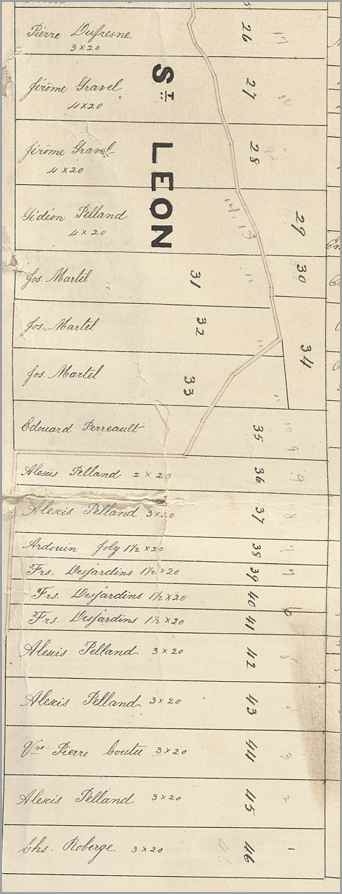 Pierre Dufresne 26
3x20
Jérôme Gravel 27
4x20
ST LEON
Jérôme Gravel 28
4x20
Gédéon Pelland 29
4x20
Jos. Martel 31 30
Jos. Martel 32
Jos. Martel 33 34
Edouard Perreault 35
Alexis Pelland 2x20 36
Alexis Pelland 3x20 37
Ardouin Joly 1½x20 38
Frs. Desjardins 1½x20 39
Frs. Desjardins 1½x20 40
Frs. Desjardins 1½x20 41
Alexis Pelland 3x20 42
Alexis Pelland 3x20 43
Vve Pierre Coutu 3x20 44
Alexis Pelland 3x20 45
Chs. Roberge 3x20 46